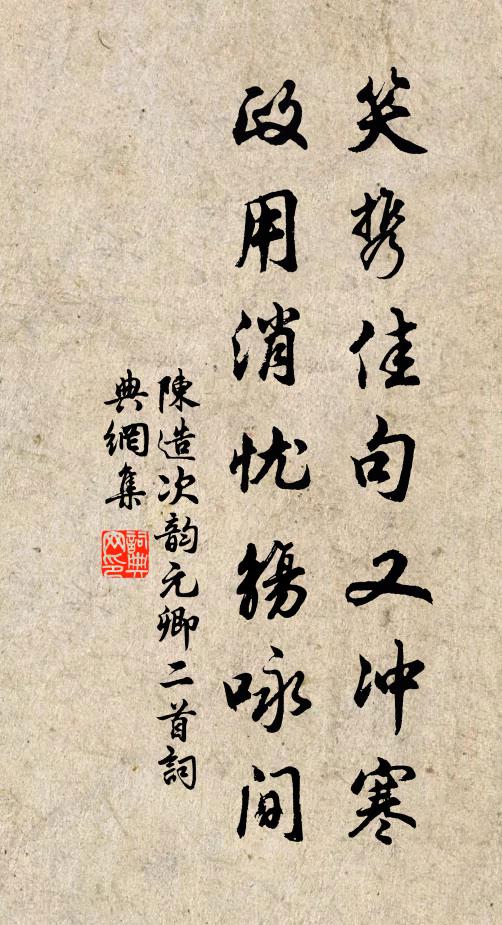 笑携佳句又冲寒
政用消忧觞咏间
陳造次韵元卿二首詞
典網集
詞典网印